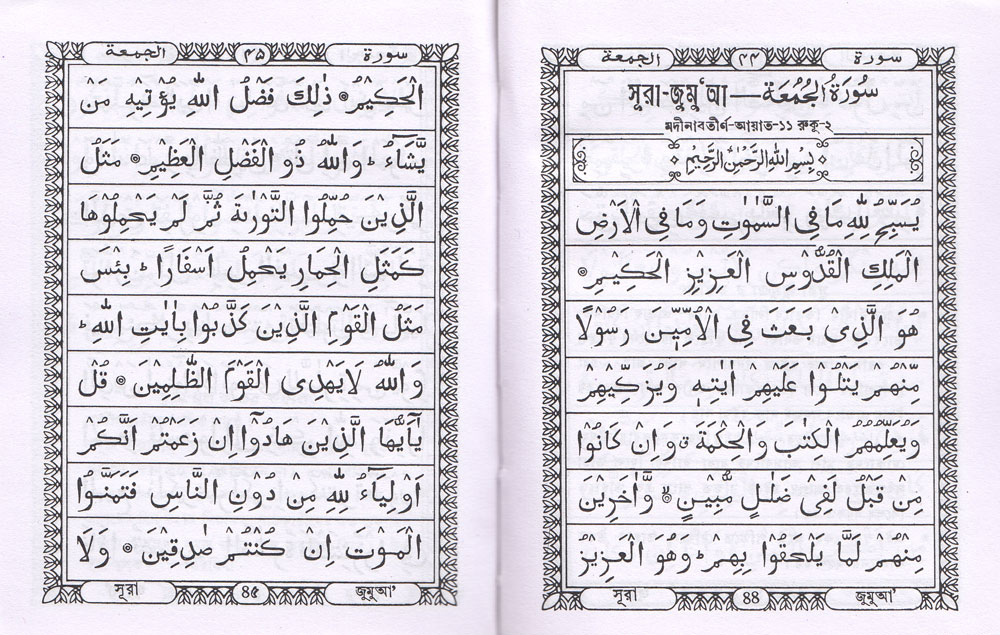 سورة ۴۴ الجمعة
সূরা-জুমু'আ- سُوْرَةُ الْجُمُعَة
মদীনাবতীর্ণ-আয়াত-১১ রুকূ-২
بِسْمِ اللّٰهِ الرَّحْمٰنِ الرَّحِيْمِ
يُسَبِّحُ لِلّٰهِ مَا فِي السَّمٰوٰتِ وَمَا فِي الْاَرْضِ
الْمَلِكِ الْقُدُّوْسِ الْعَزِيْزِ الْحَكِيْمِ ۞
هُوَ الَّذِىْ بَعَثَ فِى الْاُمِّيّٖنَ رَسُوْلًا
مِّنْهُمْ يَتْلُوْا عَلَيْهِمْ اٰيٰتِهٖ وَيُزَكِّيْهِمْ
وَيُعَلِّمُهُمُ الْكِتٰبَ وَالْحِكْمَةَ ۫ وَاِنْ كَانُوْا
مِنْ قَبْلُ لَفِىْ ضَلٰلٍ مُّبِيْنٍ ۞ وَّاٰخَرِيْنَ
مِنْهُمْ لَمَّا يَلْحَقُوْا بِهِمْ ؕ وَهُوَ الْعَزِيْزُ
সূরা ৪৪ জুমুআ'
سورة ۴۵ الجمعة
الْحَكِيْمُ ۞ ذٰلِكَ فَضْلُ اللّٰهِ يُؤْتِيْهِ مَنْ
يَّشَآءُ ؕ وَاللّٰهُ ذُو الْفَضْلِ الْعَظِيْمِ ۞ مَثَلُ
الَّذِيْنَ حُمِّلُوا التَّوْرٰىةَ ثُمَّ لَمْ يَحْمِلُوْهَا
كَمَثَلِ الْحِمَارِ يَحْمِلُ اَسْفَارًا ؕ بِئْسَ
مَثَلُ الْقَوْمِ الَّذِيْنَ كَذَّبُوْا بِاٰيٰتِ اللّٰهِ ؕ
وَاللّٰهُ لَا يَهْدِى الْقَوْمَ الظّٰلِمِيْنَ ۞ قُلْ
يٰۤاَيُّهَا الَّذِيْنَ هَادُوْۤا اِنْ زَعَمْتُمْ اَنَّكُمْ
اَوْلِيَآءُ لِلّٰهِ مِنْ دُوْنِ النَّاسِ فَتَمَنَّوُا
الْمَوْتَ اِنْ كُنْتُمْ صٰدِقِيْنَ ۞ وَلَا
সূরা ৪৫ জুমুআ'